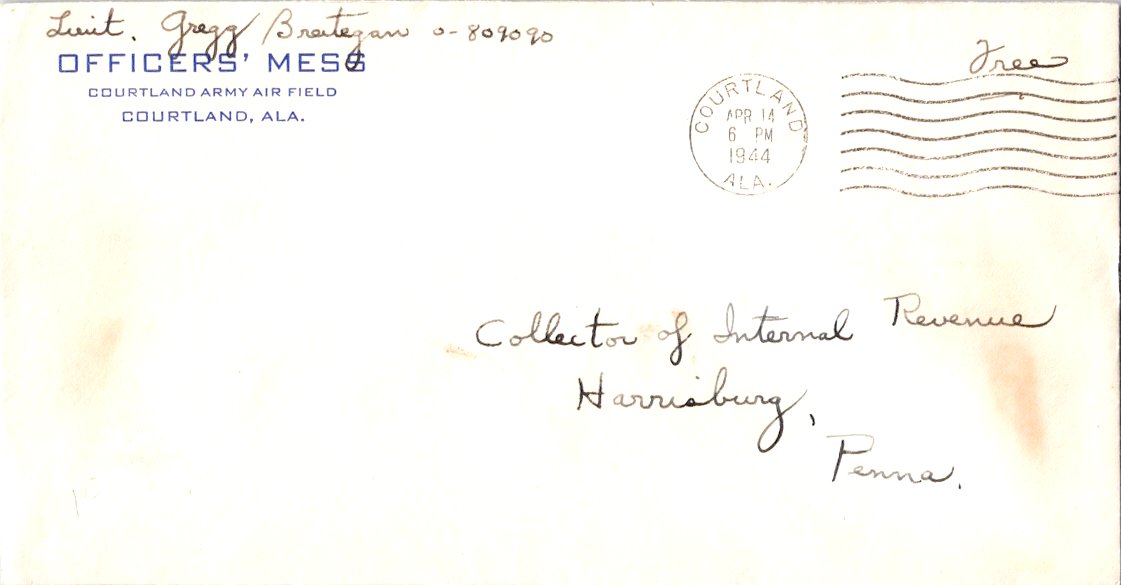 Lieut. Gregg Breitegan O-809090
OFFICERS' MESS
COURTLAND ARMY AIR FIELD
COURTLAND, ALA.
Free
COURTLAND
APR 14
6 PM
1944
ALA.
Collector of Internal Revenue
Harrisburg,
Penna.